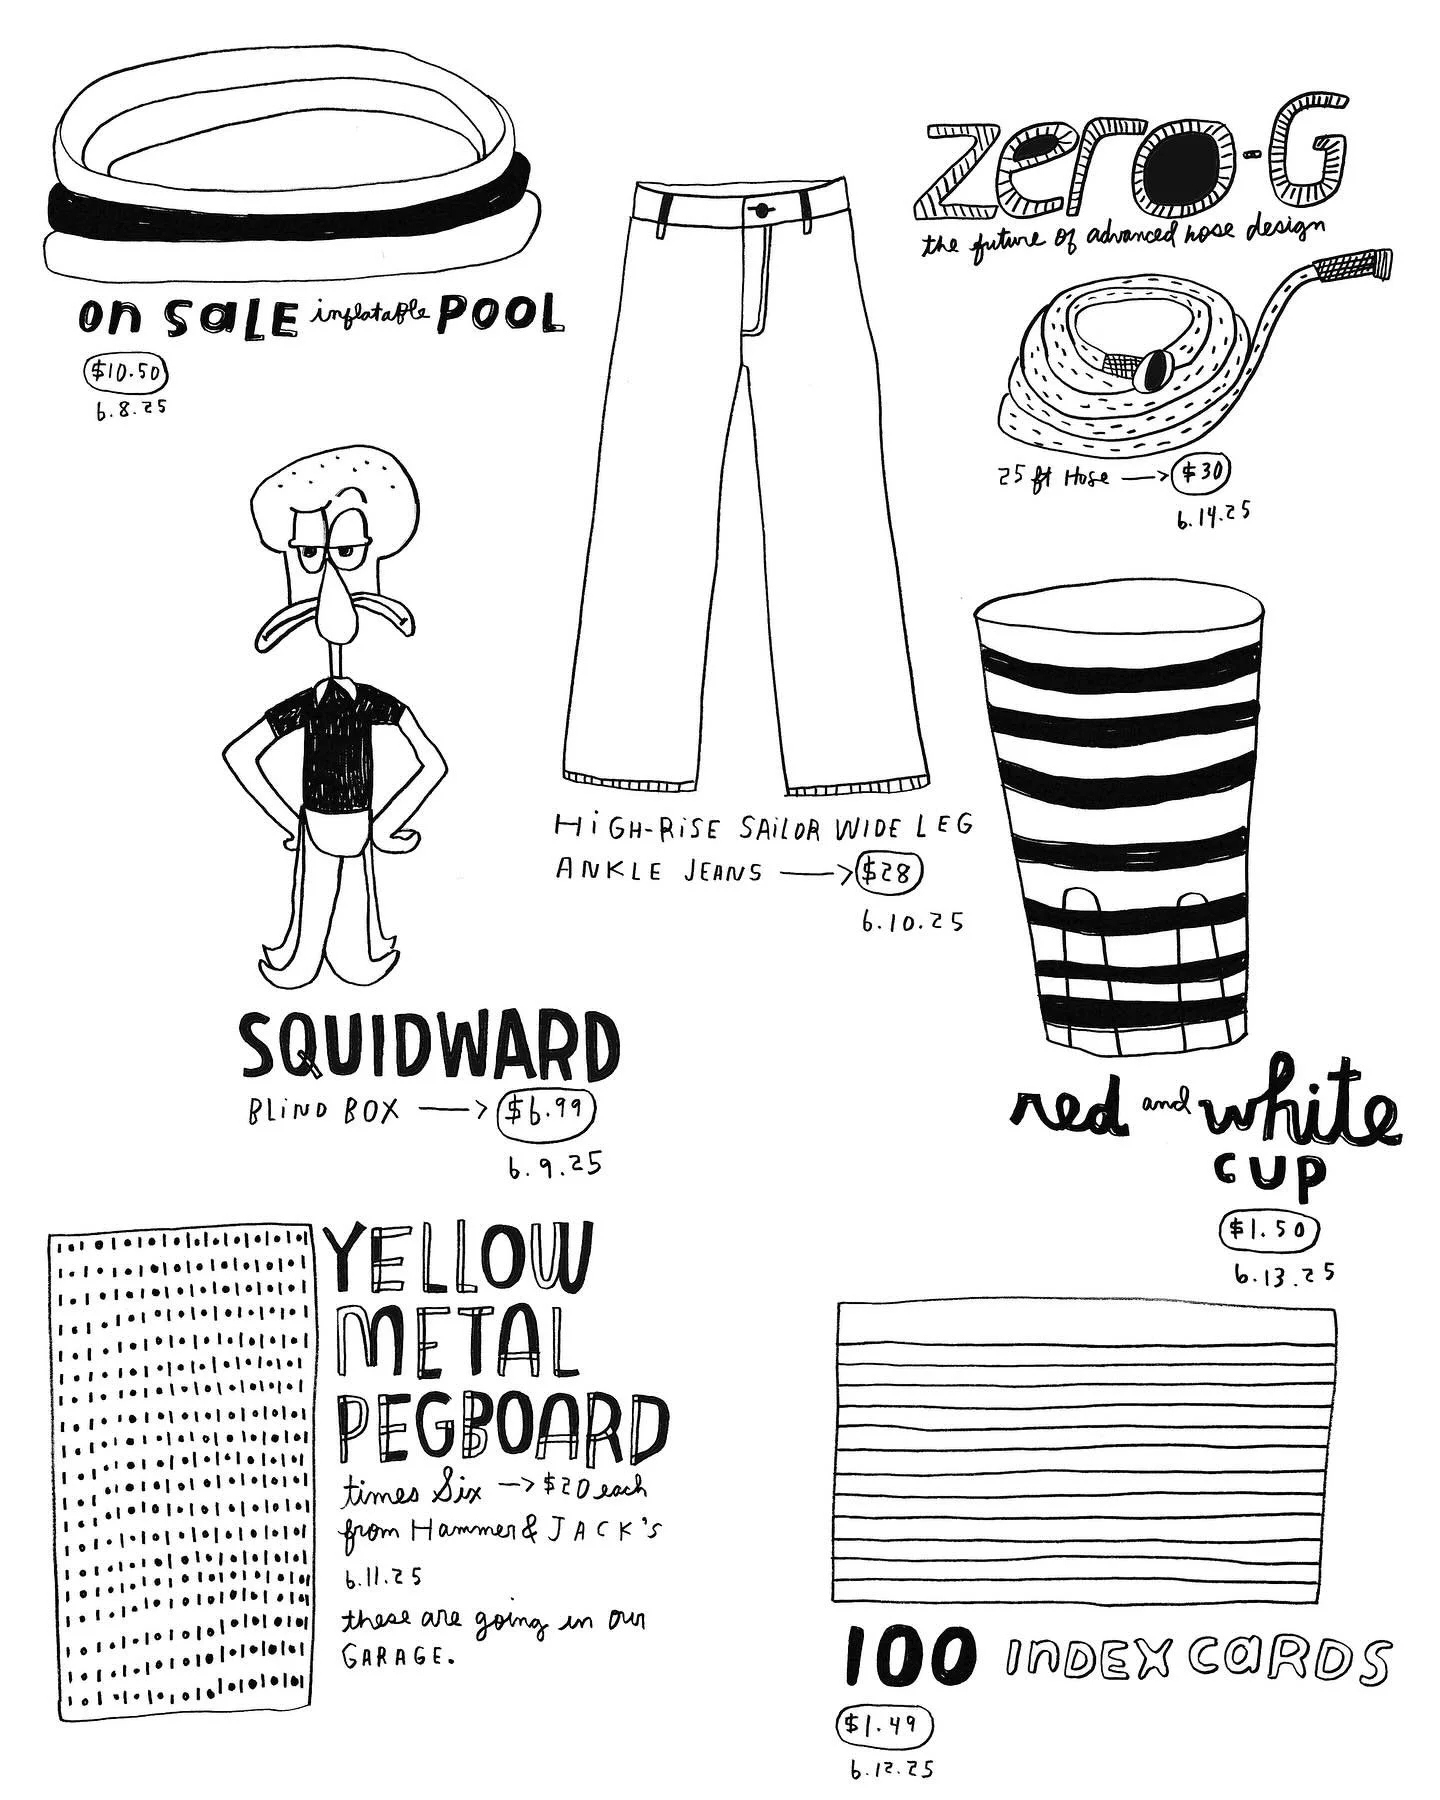 on SALE inflatable POOL
$10.50
6.8.25
zero-G
the future of advanced hose design
25 ft Hose → $30
6.14.25
HiGH-RiSE SAiLOR WIDE LEG
ANKLE JEANS → $28
6.10.25
SQUIDWARD
BLiND BOX → $6.99
6.9.25
red and white
CUP
$1.50
6.13.25
YELLOW
METAL
PEGBOARD
times Six → $20 each
from Hammer & JACK's
6.11.25
these are going in our
GARAGE.
100 INDEX CARDS
$1.49
6.12.25